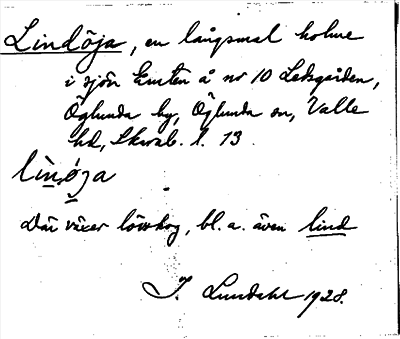 Lindöja, en långsmal holme
i sjön Emten å nr 10 Ledsgården,
Öglunda by, Öglunda sn, Valle
hd, Skarab. l. 13.
lìnǿja
Där växer lövskog, bl. a. även lind
J. Lundahl 1928.